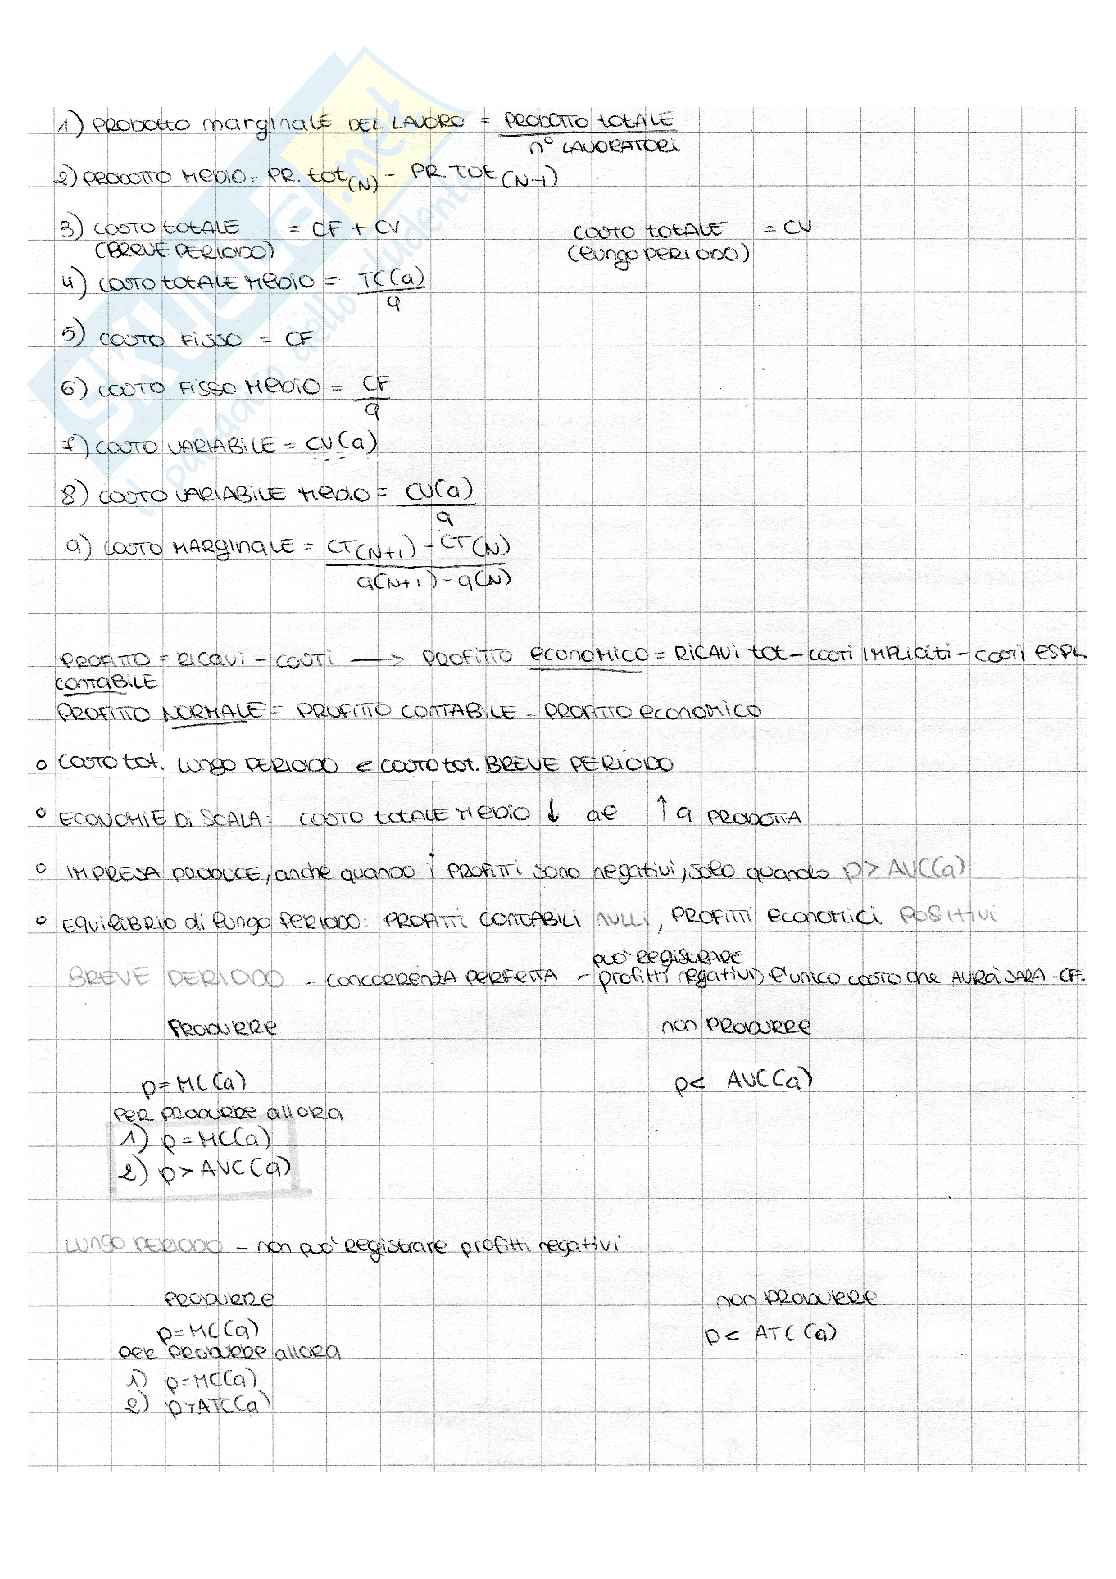 1) PRODOTTO marginale DEL LAVORO = PRODOTTO TOTALE / n° LAVORATORI
2) PRODOTTO MEDIO = PR. tot(N) - PR. TOT(N-1)
3) COSTO TOTALE (BREVE PERIODO) = CF + CV    COSTO TOTALE (lungo PERIODO) = CV
4) COSTO TOTALE MEDIO = TC(q) / q
5) COSTO FISSO = CF
6) COSTO FISSO MEDIO = CF / q
7) COSTO VARIABILE = CV(q)
8) COSTO VARIABILE MEDIO = CV(q) / q
9) COSTO MARGINALE = CT(N+1) - CT(N) / q(N+1) - q(N)
PROFITTO = RICAVI - COSTI → PROFITTO economico = RICAVI tot - COSTI IMPLICITI - COSTI ESPL.
CONTABILE
PROFITTO NORMALE = PROFITTO CONTABILE - PROFITTO economico
o COSTO tot. LUNGO PERIODO < COSTO tot. BREVE PERIODO
o ECONOMIE DI SCALA: COSTO TOTALE MEDIO ↓ al ↑ q PRODOTTA
o IMPRESA PRODUCE, anche quando i PROFITTI sono negativi, solo quando p > AVC(q)
o EQUILIBRIO di lungo PERIODO: PROFITTI CONTABILI NULLI, PROFITTI economici POSITIVI
può REGISTRARE
BREVE PERIODO - CONCORRENZA PERFETTA - profitti negativi, l'unico costo che AVRÀ SARÀ CF.
PRODURRE    non PRODURRE
p = MC(q)    p < AVC(q)
PER PRODURRE allORA
1) p = MC(q)
2) p > AVC(q)
LUNGO PERIODO - non può registrare profitti negativi
PRODURRE    non PRODURRE
p = MC(q)    p < ATC(q)
PER PRODURRE allORA
1) p = MC(q)
2) p > ATC(q)